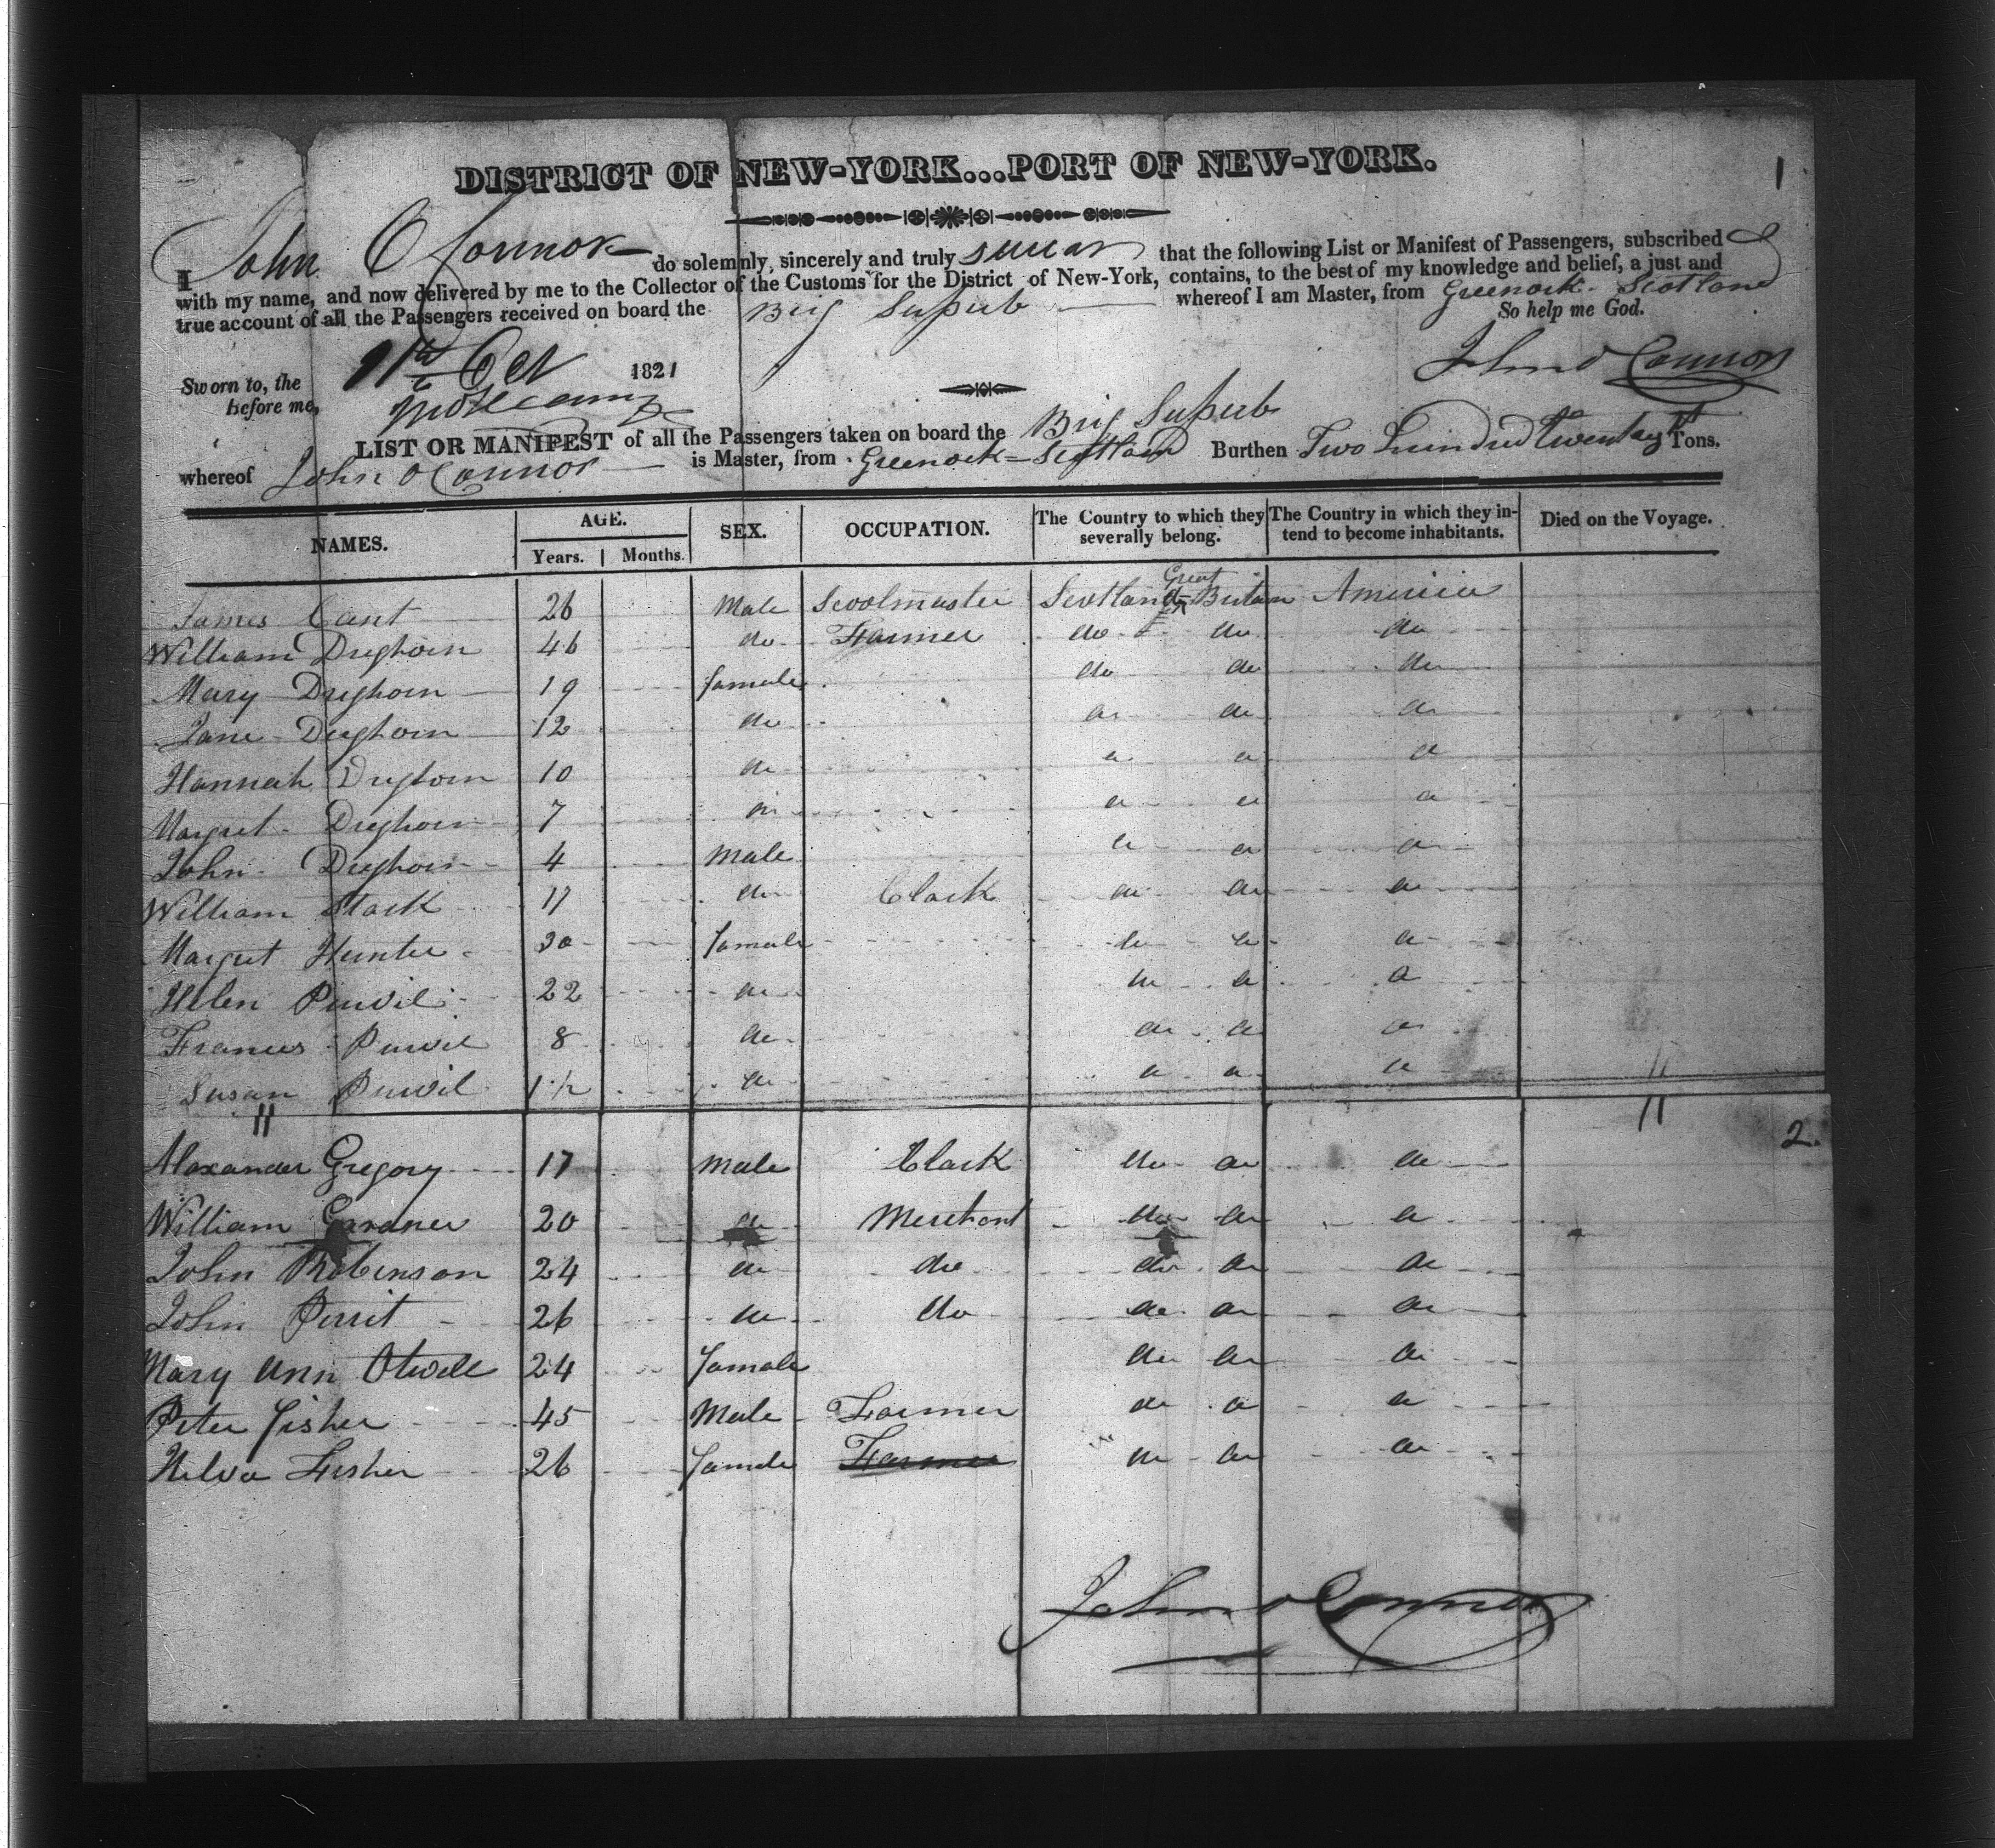 1
DISTRICT OF NEW-YORK...PORT OF NEW-YORK.
I John O Connor do solemnly, sincerely and truly swear that the following List or Manifest of Passengers, subscribed
with my name, and now delivered by me to the Collector of the Customs for the District of New-York, contains, to the best of my knowledge and belief, a just and
true account of all the Passengers received on board the Brig Superb whereof I am Master, from Greenock Scotland
So help me God.
Sworn to, the 11th Oct 1821 John O Connor
before me,
LIST OR MANIFEST of all the Passengers taken on board the Brig Superb
whereof John O Connor is Master, from Greenock - Scotland Burthen Two Hundred twenty Tons.
NAMES. AGE. Years. Months. SEX. OCCUPATION. The Country to which they severally belong. The Country in which they intend to become inhabitants. Died on the Voyage.
James Cant 26 Male Scoolmaster Scotland Great Britain America
William Dreghorn 46 do Farmer do do do
Mary Dreghorn 19 famale do do do
Jane Dreghorn 12 do do do do
Hannah Dreghorn 10 do do do do
Margret Dreghorn 7 do do do do
John Dreghorn 4 Male do do do
William Stark 17 do Clark do do do
Margret Hunter 30 famale do do do
Helen 22 do do do do
Frances 8 do do do do
Susan 1 1/2 do do do do
11 11
2.
Alaxander Gregory 17 Male Clark do do do
William Gardner 20 do Merchant do do do
John Robinson 24 do do do do do
John Perrit 26 do do do do do
Mary Ann Otwell 24 famale do do do
Peter Fisher 45 Male Farmer do do do
Fisher 26 famale Farmer do do do
John O Connor